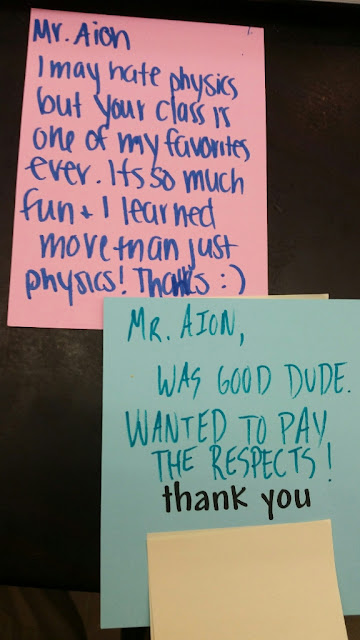 Mr. Aion
I may hate physics
but your class is
one of my favorites
ever. Its so much
fun + I learned
more than just
physics! Thanks :)
MR. AION,
WAS GOOD DUDE.
WANTED TO PAY
THE RESPECTS!
thank you